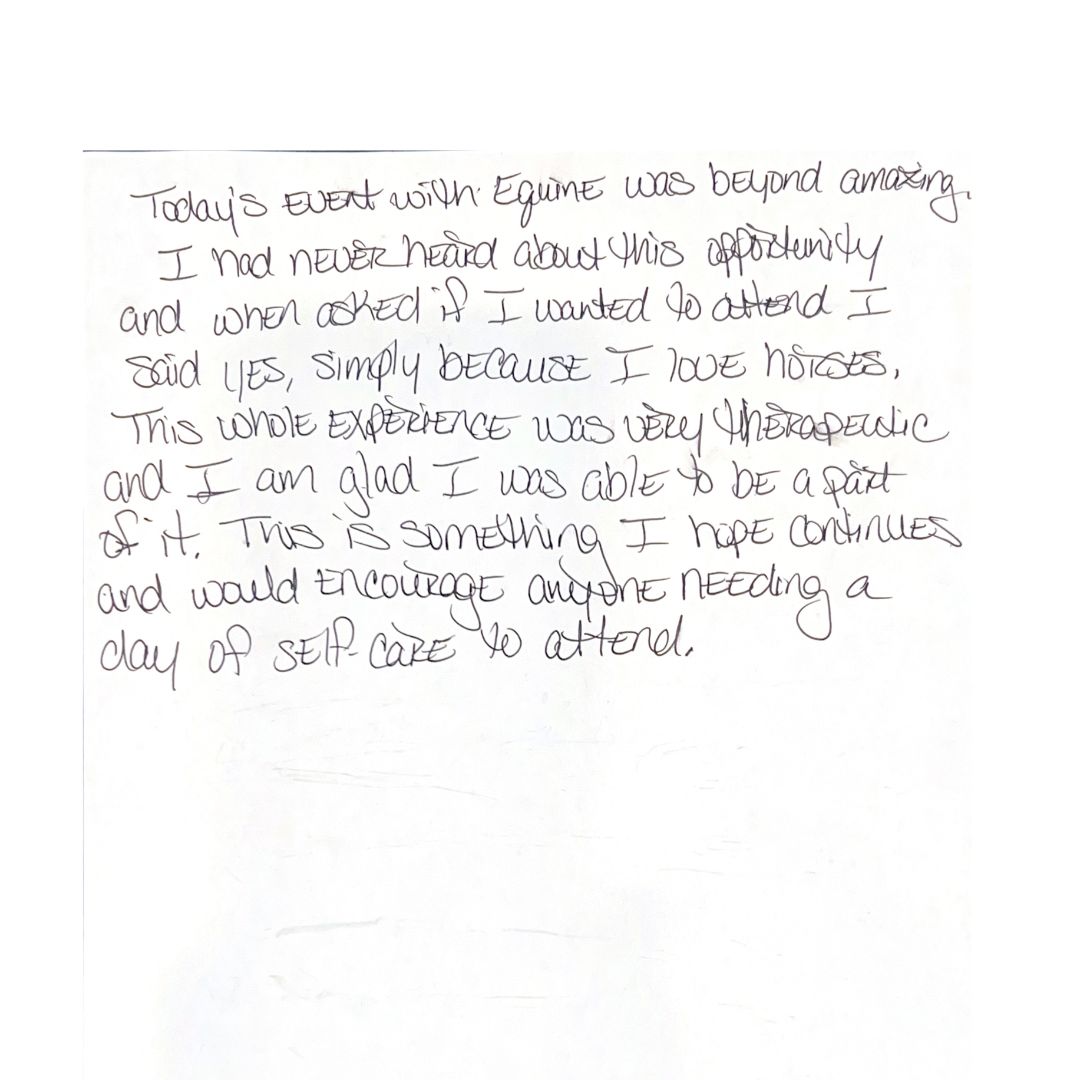 Today's event with Equine was beyond amazing.
I had never heard about this opportunity
and when asked if I wanted to attend I
said yes, simply because I love horses.
This whole experience was very therapeutic
and I am glad I was able to be a part
of it. This is something I hope continues
and would encourage anyone needing a
day of self-care to attend.